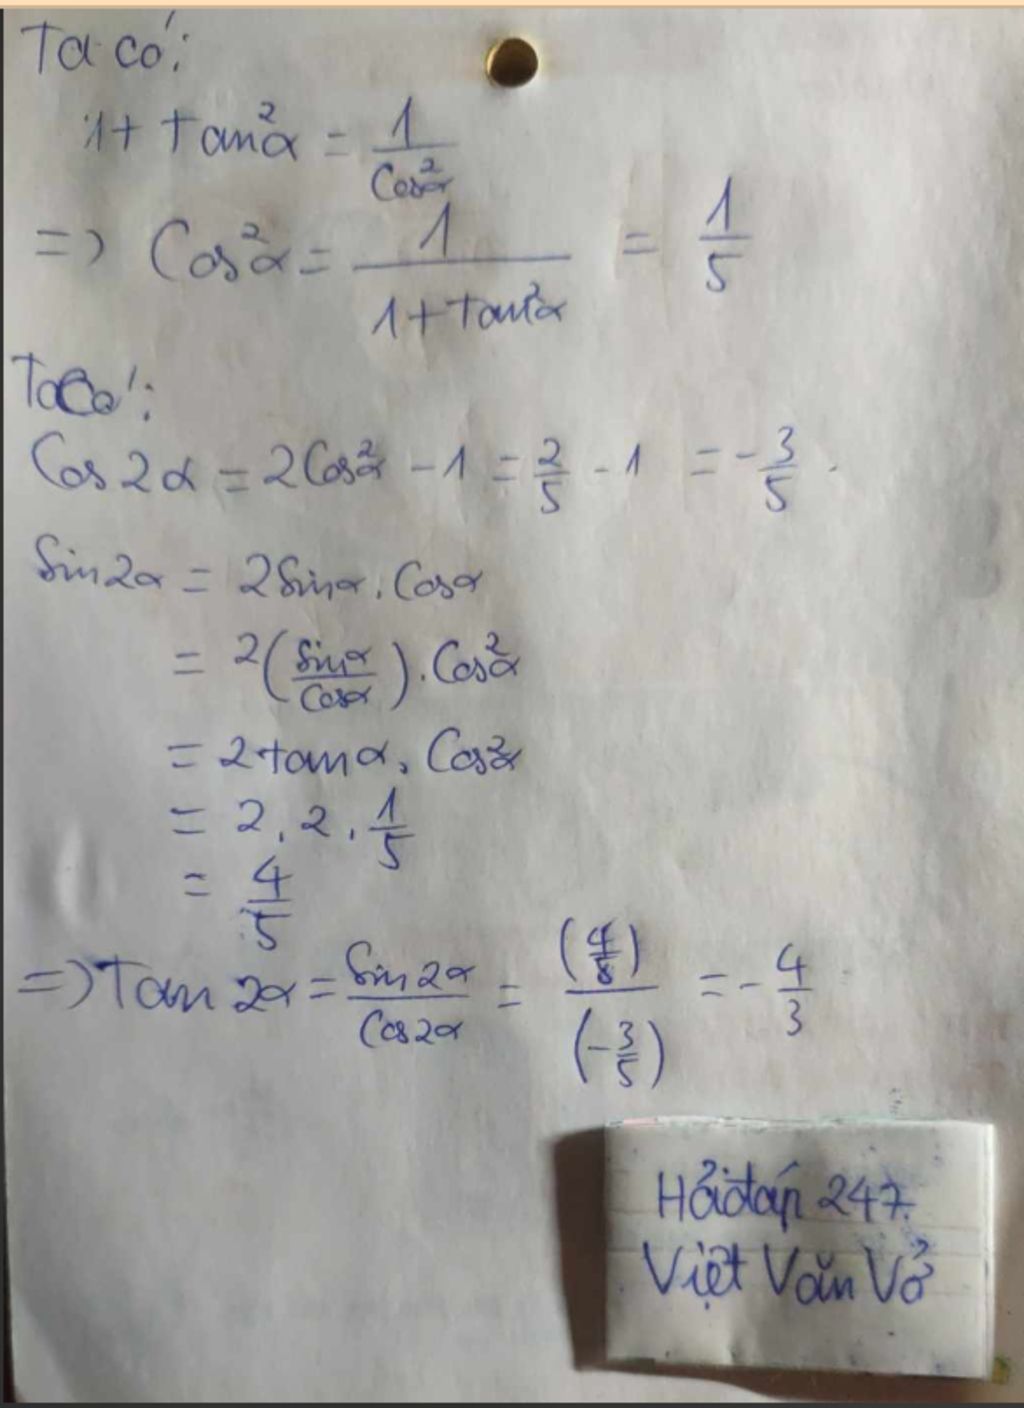 Ta có:
1 + tan²α = 1/cos²α
=> Cos²α = 1/(1 + tan²α) = 1/5
Ta có:
Cos 2α = 2Cos²α - 1 = 2/5 - 1 = -3/5.
Sin2α = 2Sinα . Cosα
= 2(Sinα/Cosα) . Cos²α
= 2tanα . Cos²α
= 2 . 2 . 1/5
= 4/5
=> Tan 2α = Sin2α/Cos2α = (4/5)/(-3/5) = -4/3
Hỏi đáp 247.
Việt Văn Vở